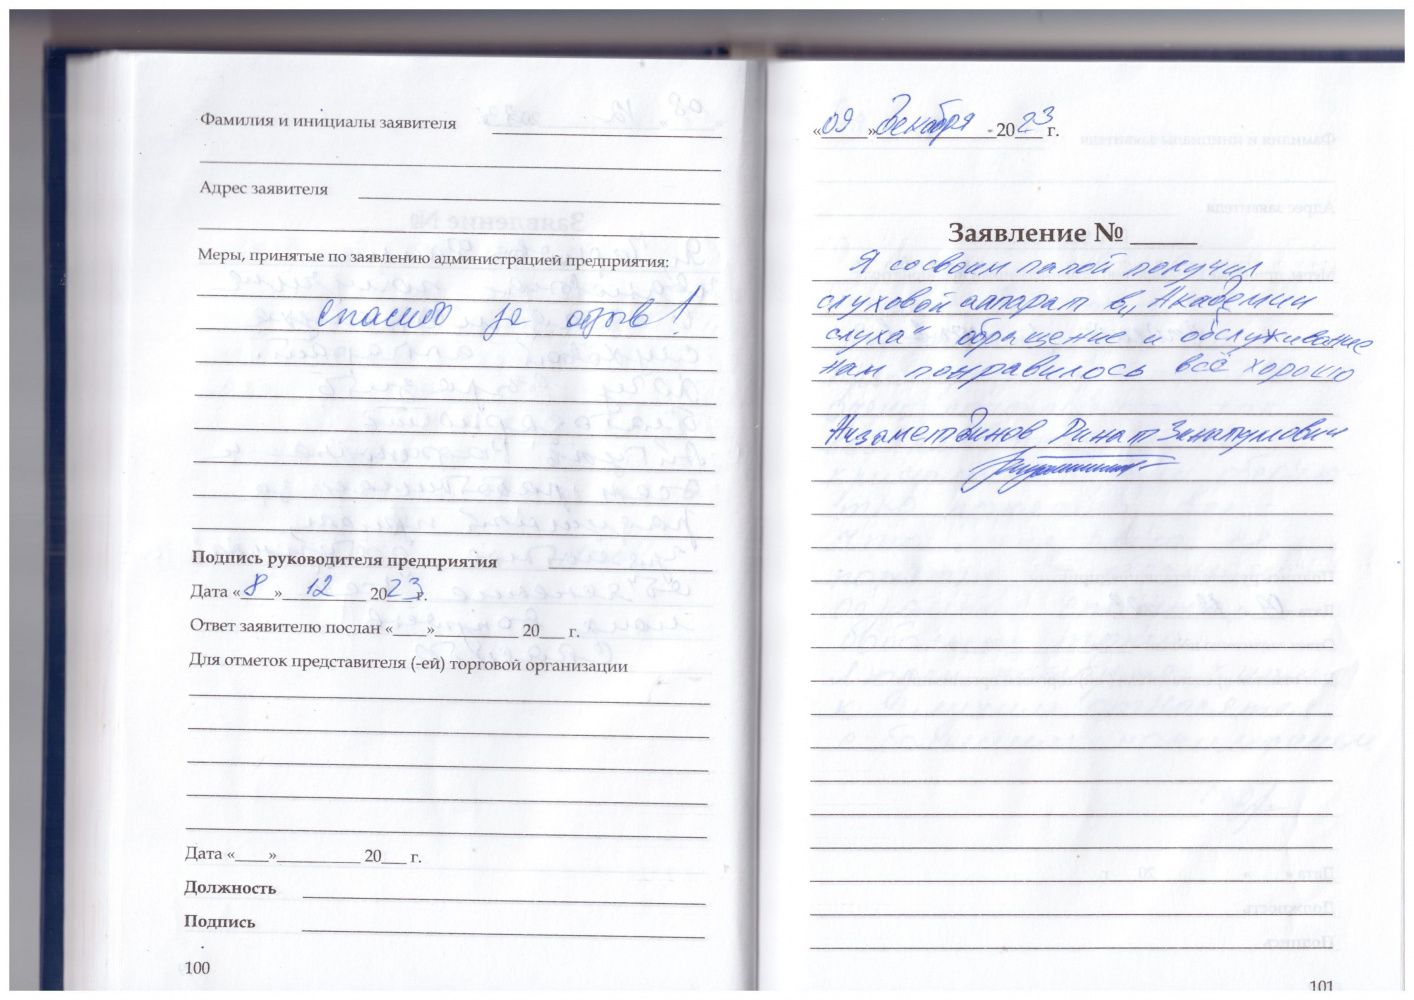 Фамилия и инициалы заявителя
Адрес заявителя
Меры, принятые по заявлению администрацией предприятия:
Спасибо за отзыв!
Подпись руководителя предприятия
Дата «8» 12 2023 г.
Ответ заявителю послан «____»__________ 20___ г.
Для отметок представителя (-ей) торговой организации
Дата «____»__________ 20___ г.
Должность
Подпись
100
«09» Декабря 2023 г.
Заявление № _____
Я со своим папой получил
слуховой аппарат в „Академии
слуха" обращение и обслуживание
нам понравилось всё хорошо
Низаметдинов Ринат Зинатулович
101